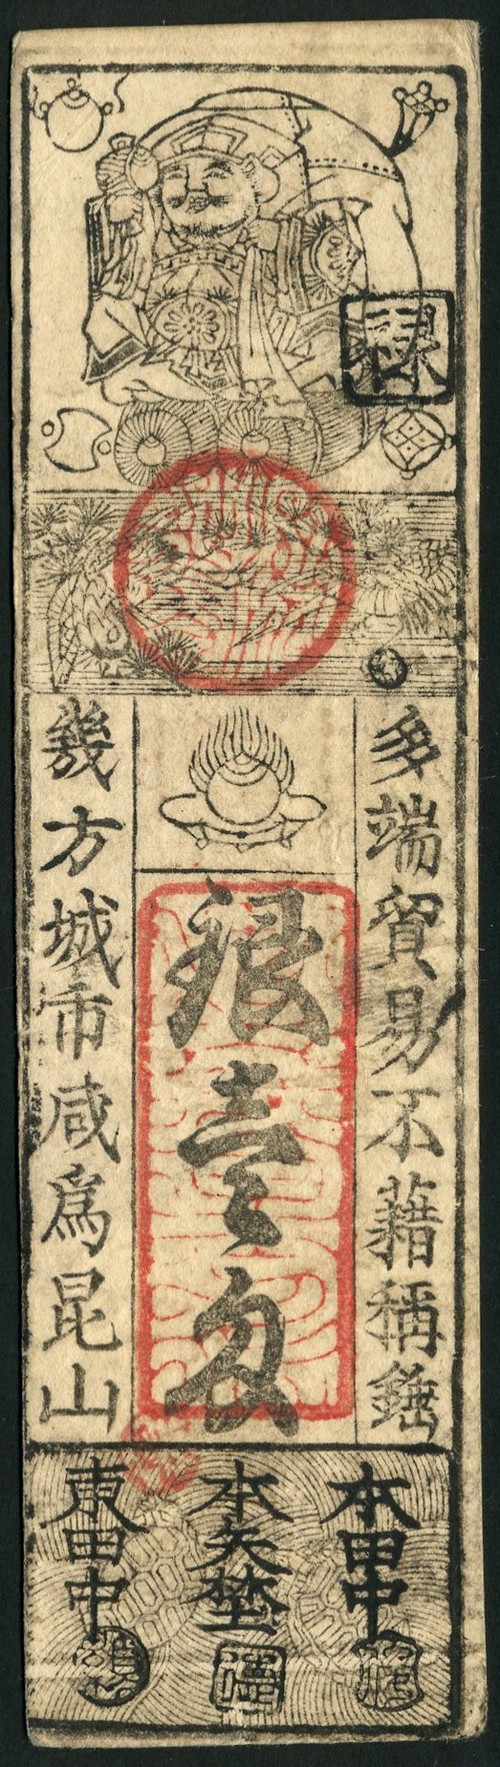 禄
多端貿易不藉稱錘
銀壹匁
幾方城市咸爲昆山
本田中
本矢埜
東田中